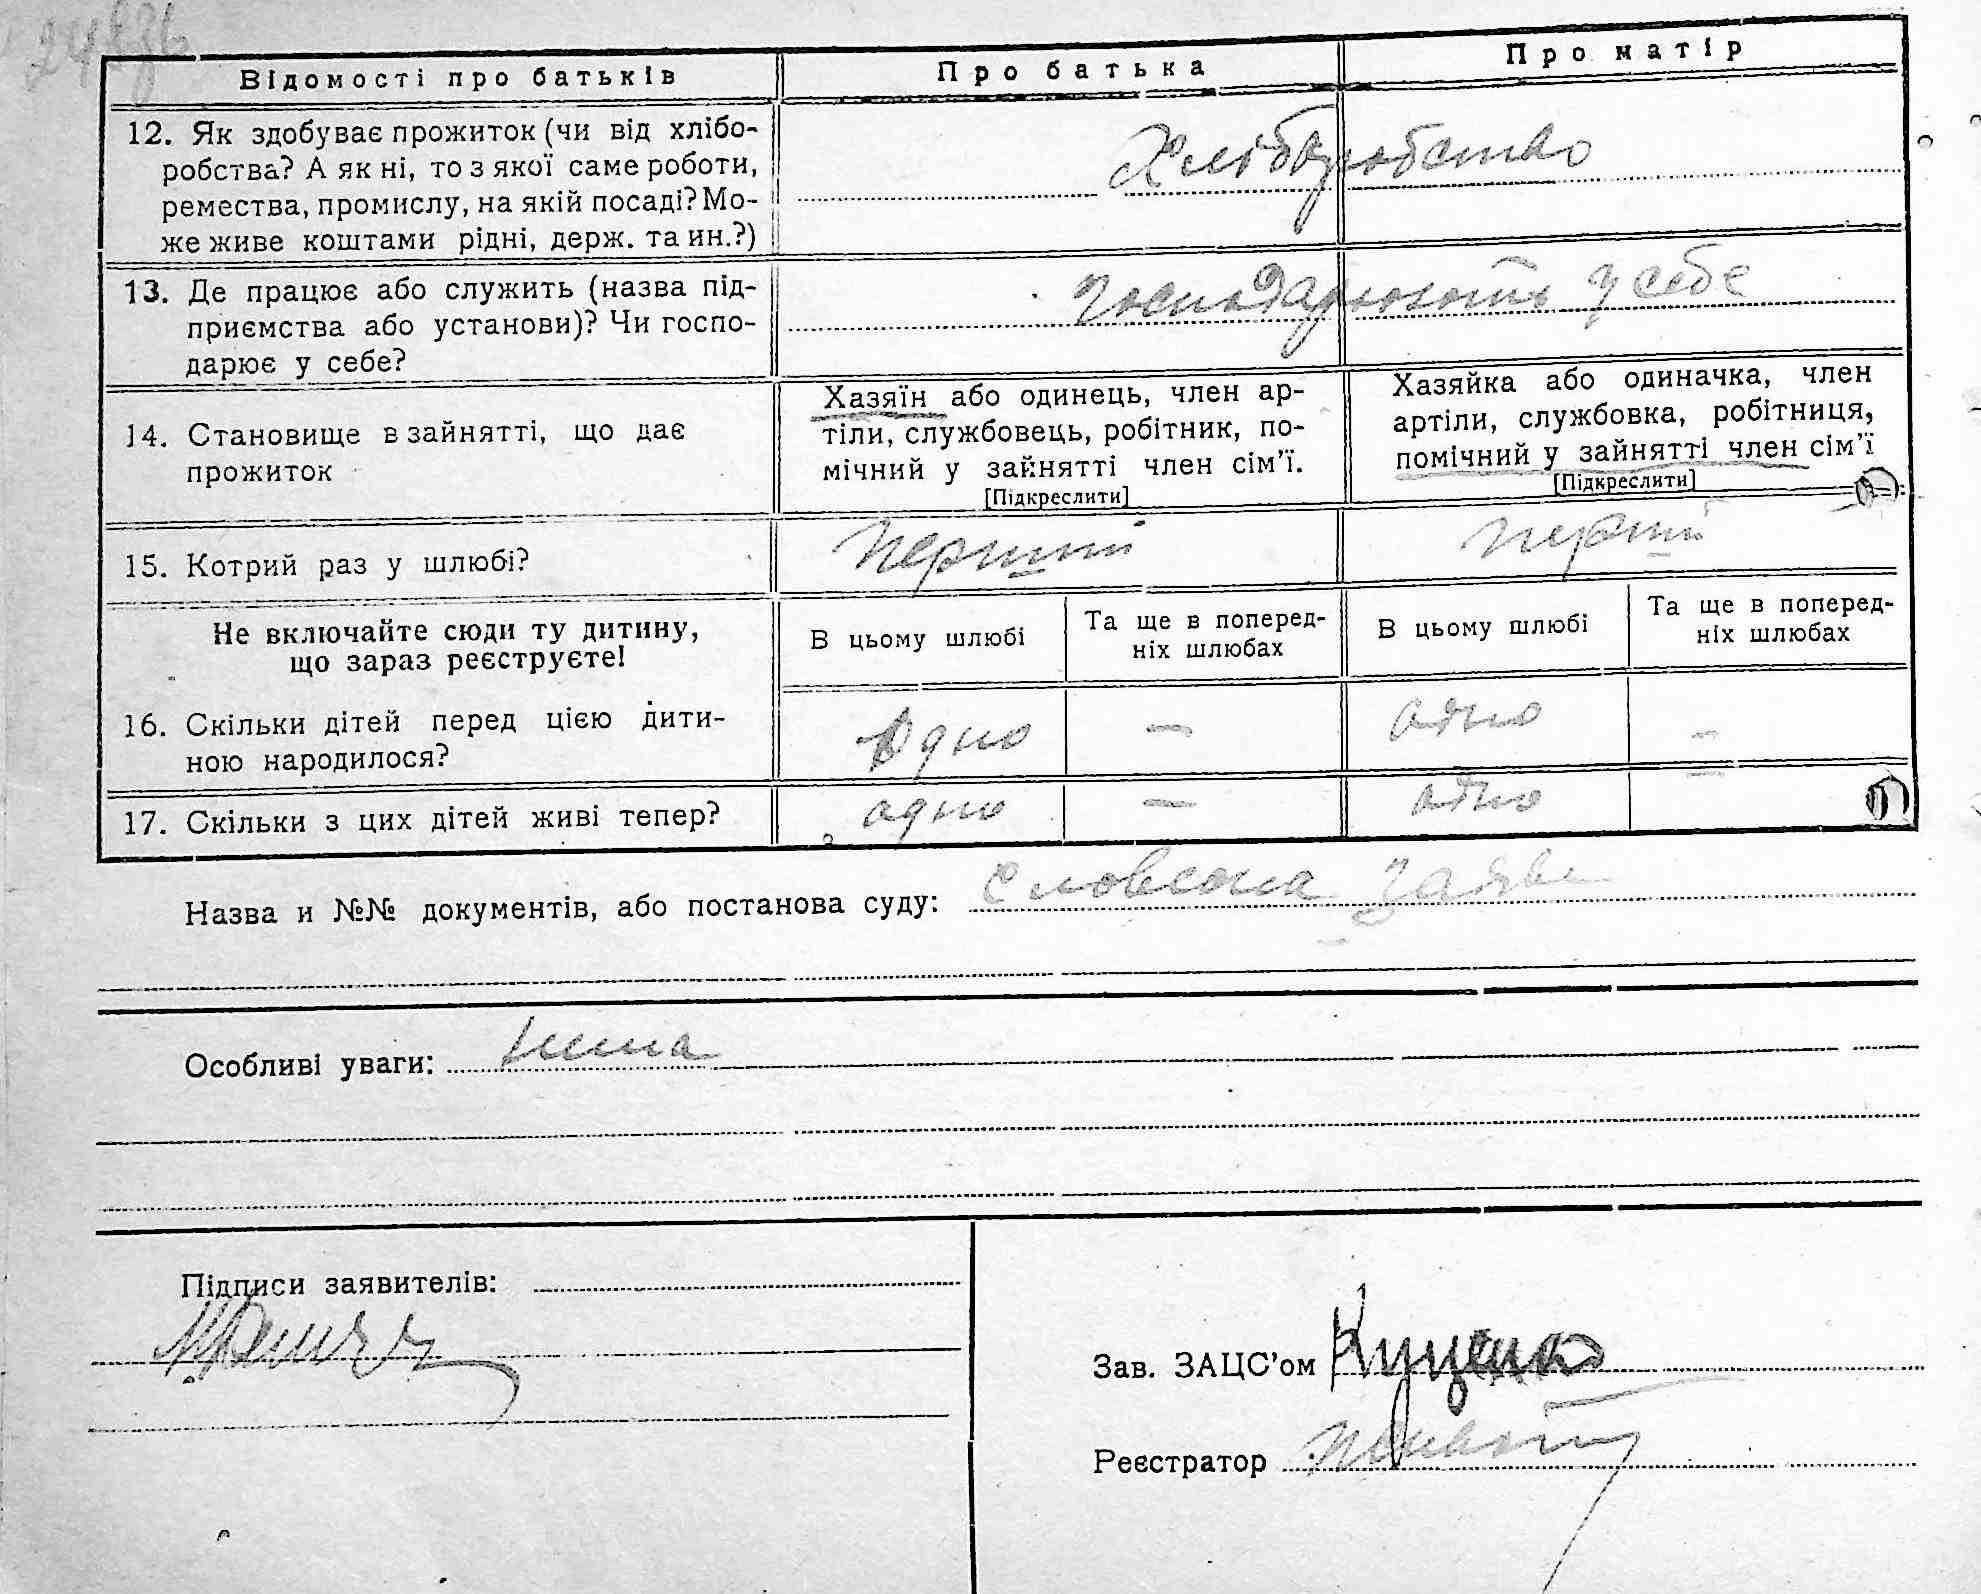 Відомості про батьків Про батька Про матір
12. Як здобуває прожиток (чи від хлібо-
робства? А як ні, то з якої саме роботи,
ремества, промислу, на якій посаді? Мо-
же живе коштами рідні, держ. та ин.?)
Хліборобство
13. Де працює або служить (назва під-
приємства або установи)? Чи госпо-
дарює у себе?
господарюють у себе
14. Становище в зайнятті, що дає
прожиток
Хазяїн або одинець, член ар-
тіли, службовець, робітник, по-
мічний у зайнятті член сім'ї.
[Підкреслити]
Хазяйка або одиначка, член
артіли, службовка, робітниця,
помічний у зайнятті член сім'ї
[Підкреслити]
15. Котрий раз у шлюбі? перший перший
Не включайте сюди ту дитину,
що зараз реєструєте!
В цьому шлюбі
Та ще в поперед-
ніх шлюбах
В цьому шлюбі
Та ще в поперед-
ніх шлюбах
16. Скільки дітей перед цією дити-
ною народилося?
Одно — одно —
17. Скільки з цих дітей живі тепер? одно — одно —
Назва и №№ документів, або постанова суду: словесна
Особливі уваги: нема
Підписи заявителів:
Зав. ЗАЦС'ом Куценко
Реєстратор